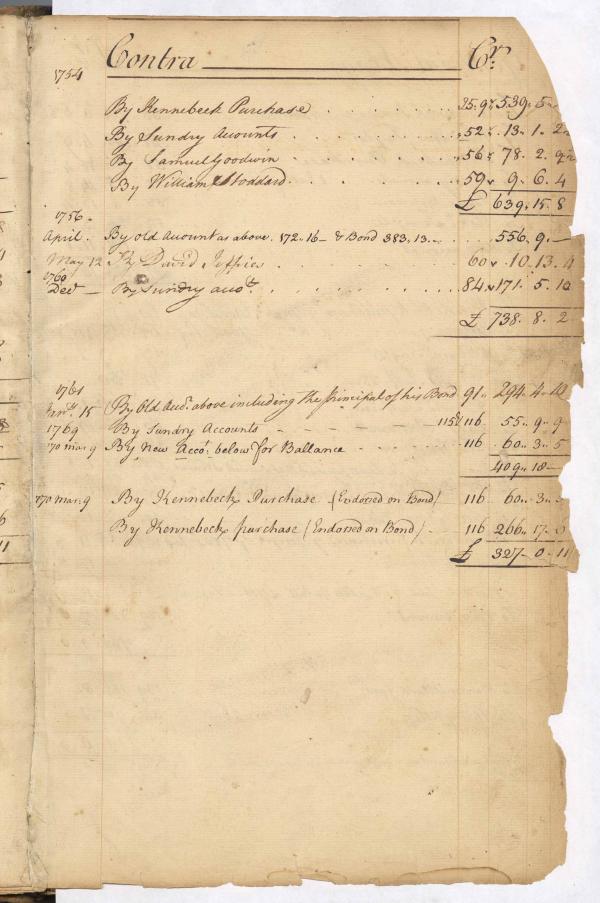 Contra Cr.
1754
By Kennebeck Purchase 35.9 539. 5
By Sundry Acounts 52 13. 1. 2
By Samuel Goodwin 56 78. 2. 9
By William Stoddard 59 9. 6. 4
£ 639. 15. 8
1756
April. By old Account as above. 172. 16 — & Bond 383. 13. — 556. 9. —
May 12 To David Jeffries 60 10. 13. 4
1760
Decr — By Sundry accots 84 171. 5. 10
£ 738. 8. 2
1761
15 By Old Acct. above including the Principal of his Bond 91 294. 4. 10
1769 By Sundry Accounts 115 & 116 55. 9. 9
1770 mar. 9 By New Acco: below for Ballance 116 60. 3. 5
409. 18 —
1770 mar: 9 By Kennebeck Purchase (Endorsed on Bond) 116 60. 3.
By Kennebeck purchase (Endorsed on Bond) 116 266. 17. 6
£ 327. 0. 11